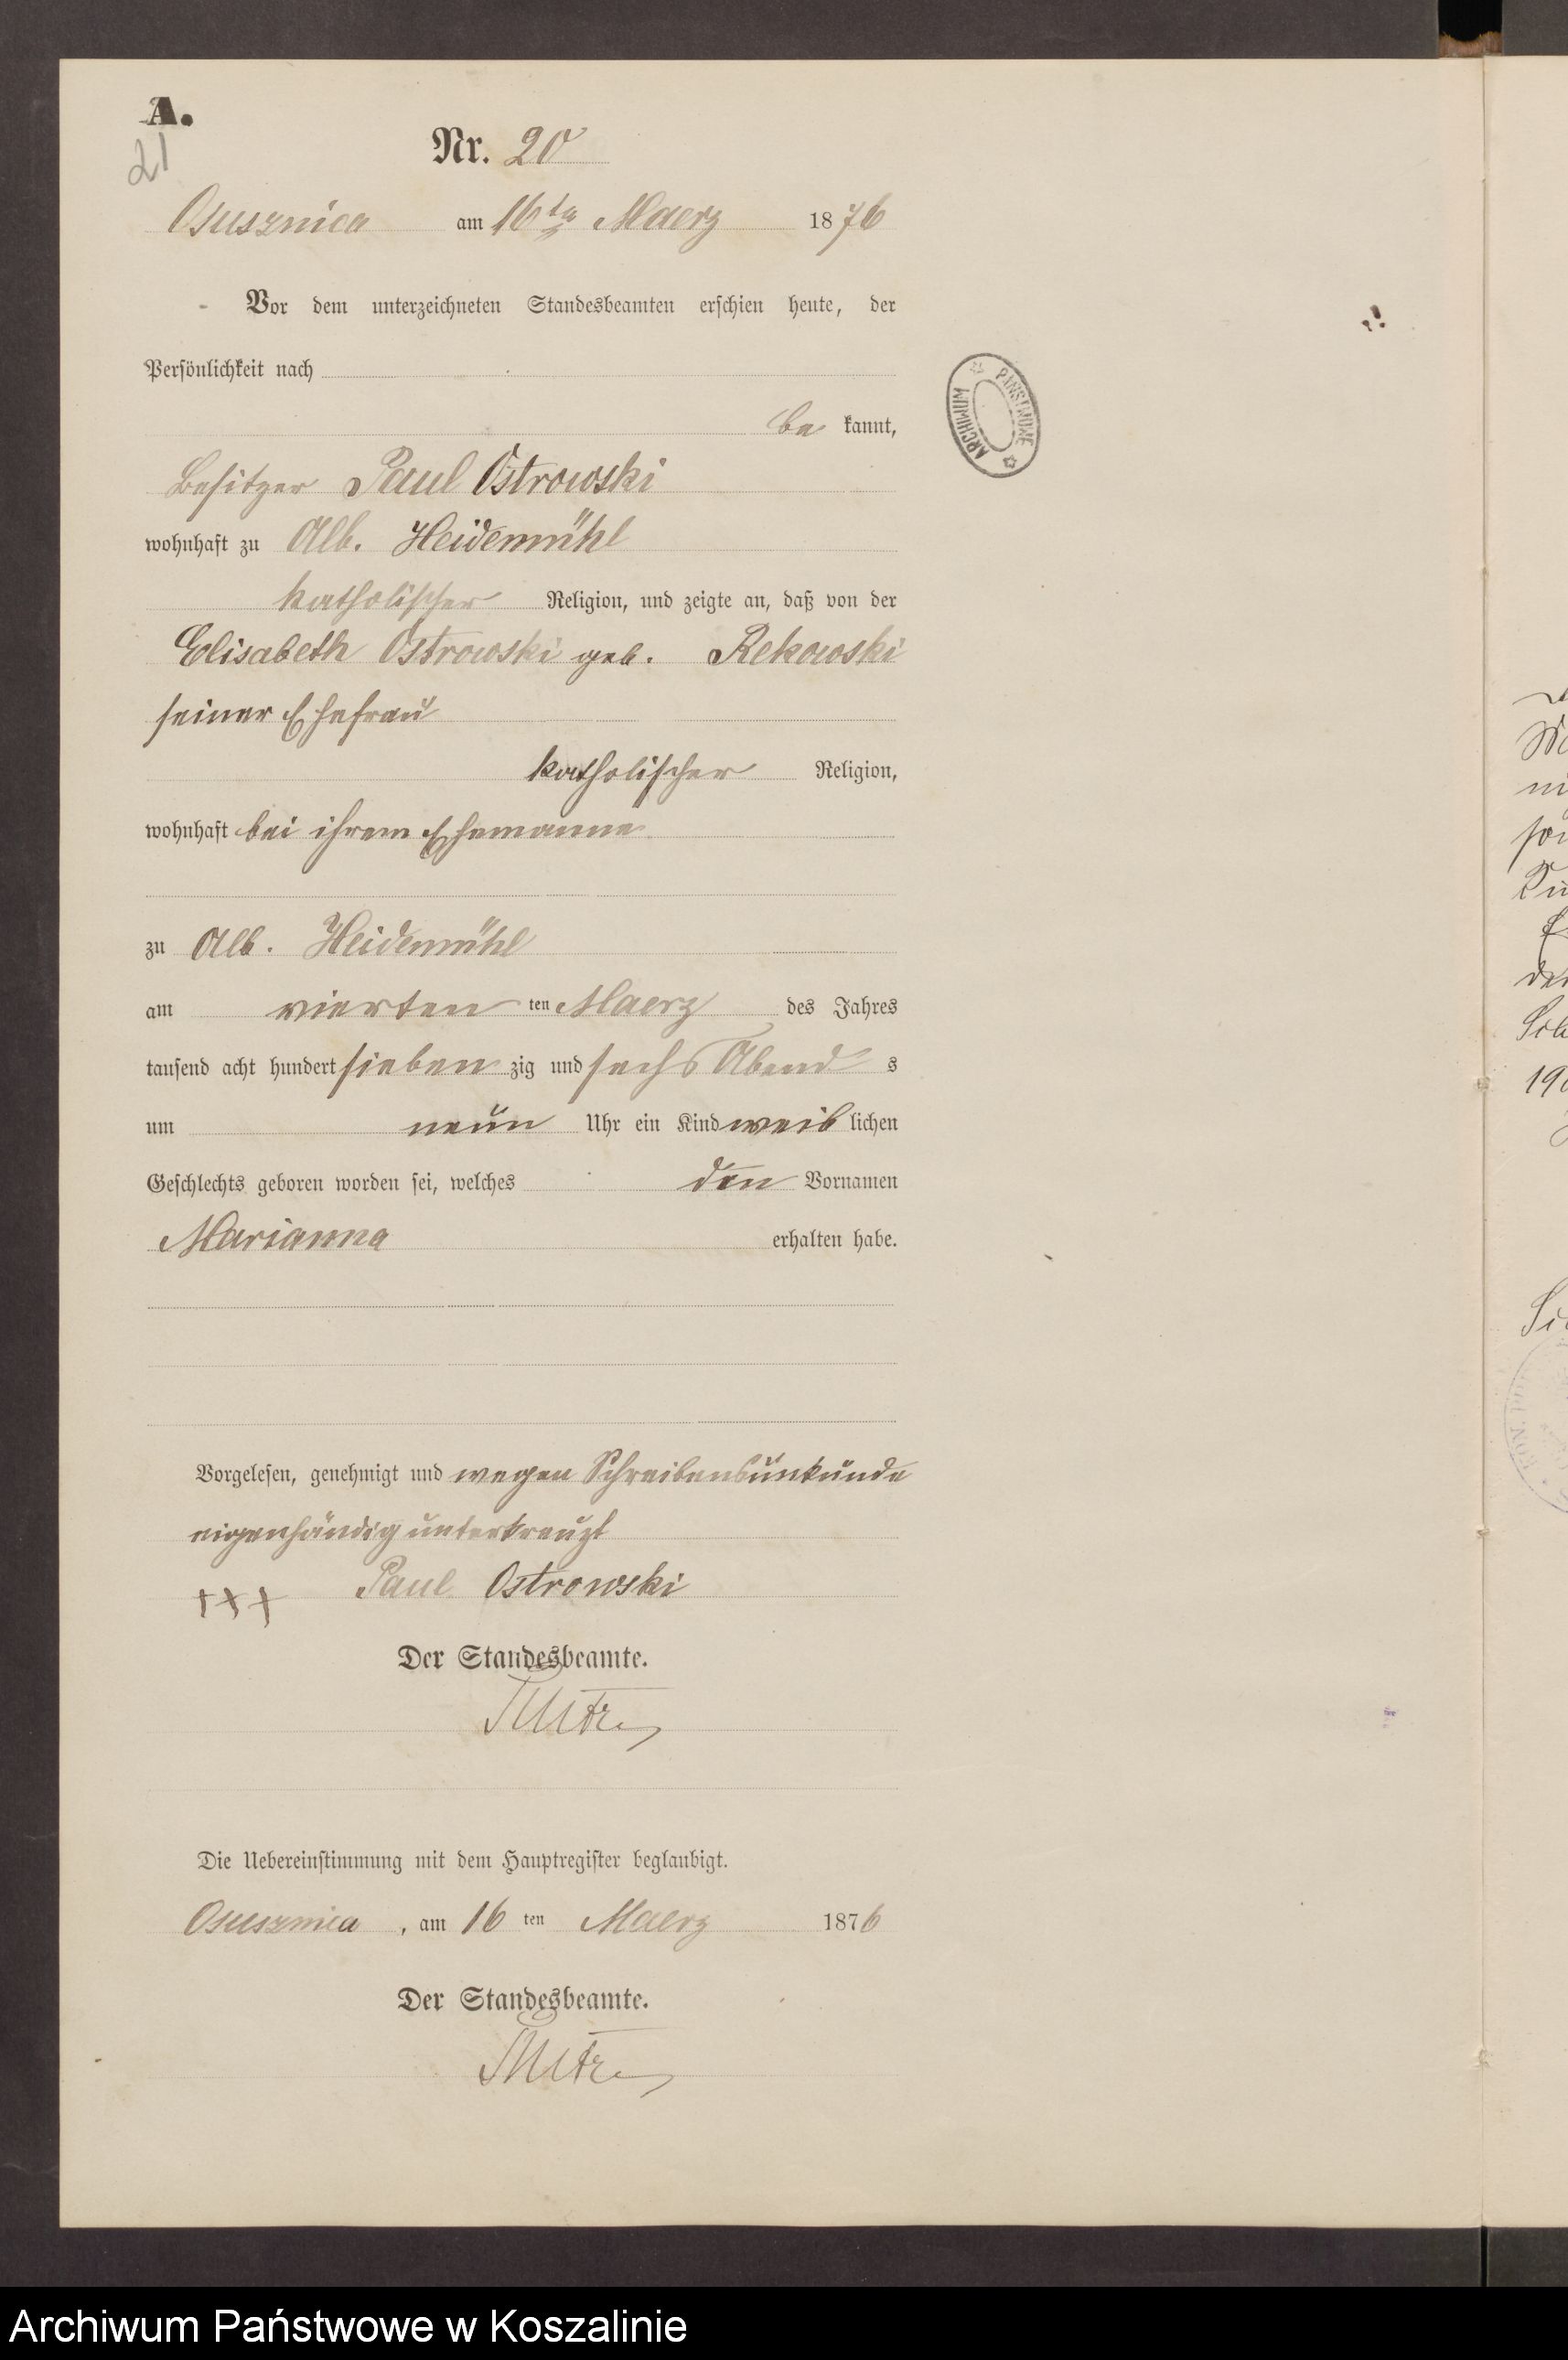 A.
21
Nr. 20
Osusznica am 16ten Maerz 1876
Vor dem unterzeichneten Standesbeamten erschien heute, der
Persönlichkeit nach
be kannt,
Besitzer Paul Ostrowski
wohnhaft zu Alb. Heidemühl
katholischer Religion, und zeigte an, daß von der
Elisabeth Ostrowski geb. Rekowski
seiner Ehefrau
katholischer Religion,
wohnhaft bei ihrem Ehemanne
zu Alb. Heidemühl
am vierten ten Maerz des Jahres
tausend acht hundert sieben zig und sechs Abend s
um neun Uhr ein Kind weib lichen
Geschlechts geboren worden sei, welches den Vornamen
Marianna erhalten habe.
Vorgelesen, genehmigt und wegen Schreibensunkunde
eigenhändig unterkreuzt
+++ Paul Ostrowski
Der Standesbeamte.
Die Uebereinstimmung mit dem Hauptregister beglaubigt.
Osusznica, am 16 ten Maerz 1876
Der Standesbeamte.
ARCHIWUM PAŃSTWOWE
Archiwum Państwowe w Koszalinie